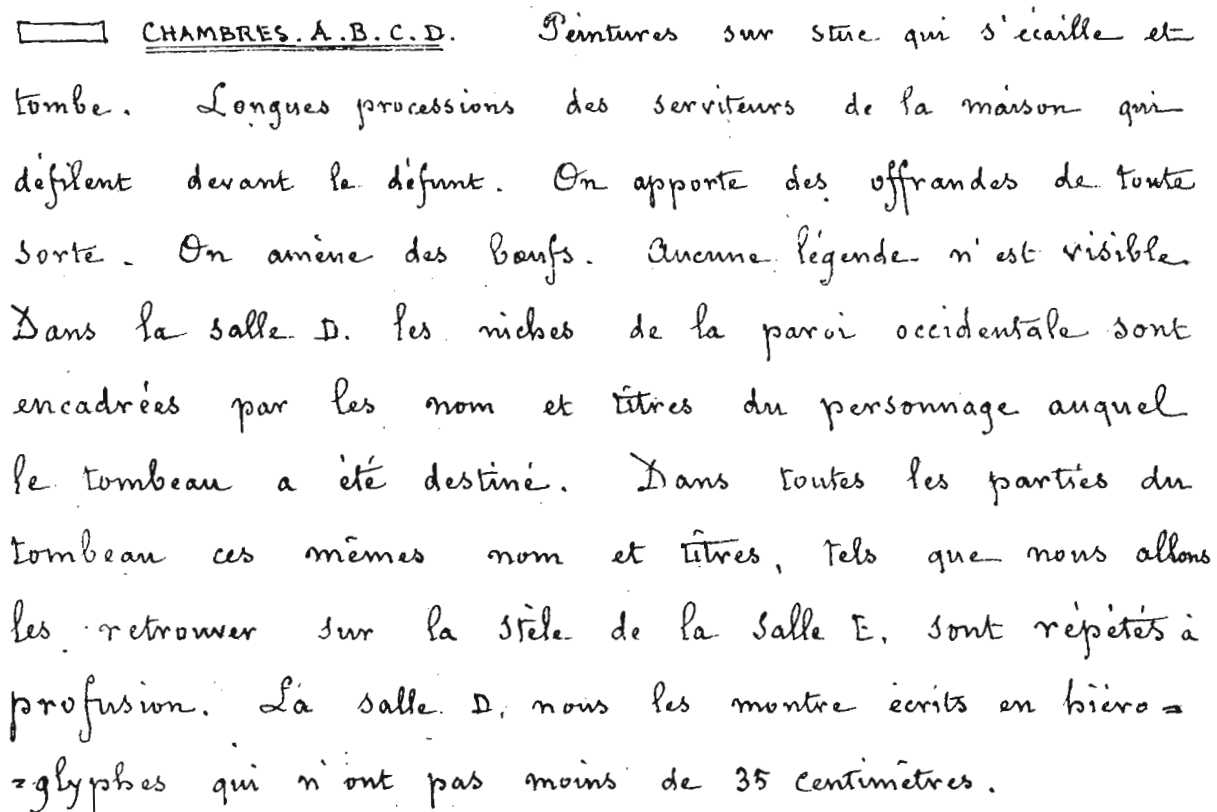 CHAMBRES. A. B. C. D. Peintures sur stuc qui s'écaille et
tombe. Longues processions des serviteurs de la maison qui
défilent devant le défunt. On apporte des offrandes de toute
sorte. On amène des bœufs. Aucune légende n'est visible.
Dans la salle D. les niches de la paroi occidentale sont
encadrées par les nom et titres du personnage auquel
le tombeau a été destiné. Dans toutes les parties du
tombeau ces mêmes nom et titres, tels que nous allons
les retrouver sur la stèle de la salle E, sont répétés à
profusion. La salle D, nous les montre écrits en hiéro=
=glyphes qui n'ont pas moins de 35 centimètres.